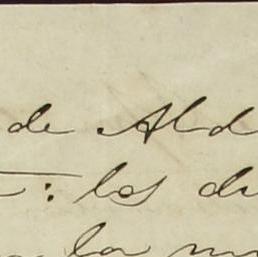 de Ald
: los di
la m